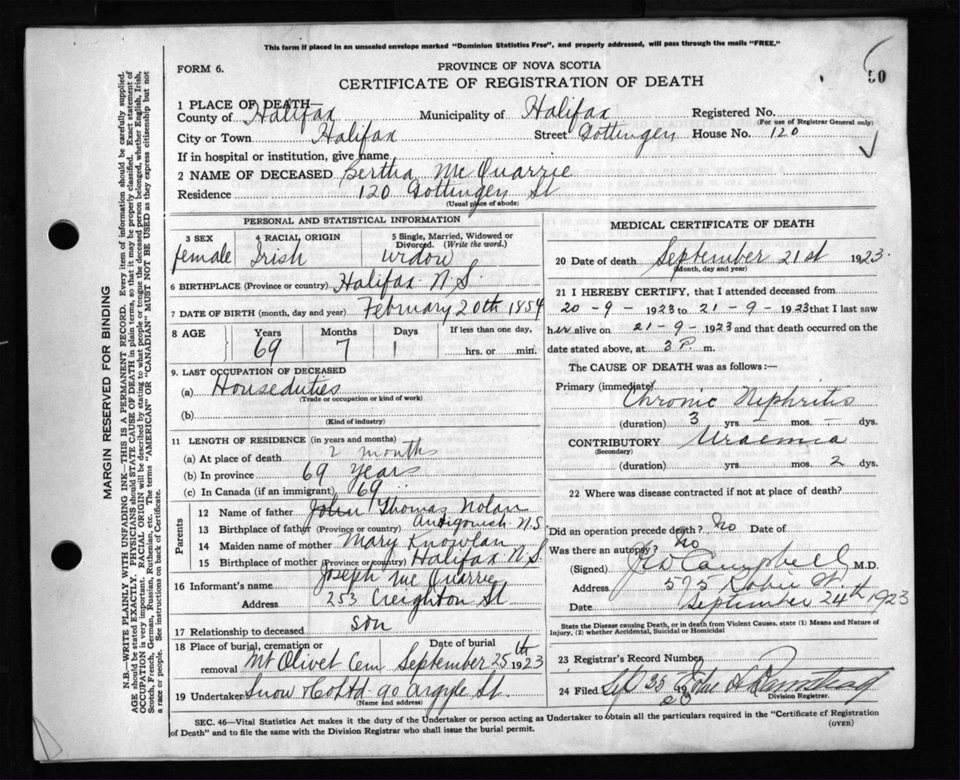 This form if placed in an unsealed envelope marked "Dominion Statistics Free", and properly addressed, will pass through the mails "FREE."
FORM 6.
PROVINCE OF NOVA SCOTIA
50
CERTIFICATE OF REGISTRATION OF DEATH
1 PLACE OF DEATH—
County of Halifax Municipality of Halifax Registered No.
(For use of Registrar General only)
City or Town Halifax Street Gottingen House No. 120
If in hospital or institution, give name
2 NAME OF DECEASED Bertha McQuarrie
Residence 120 Gottingen St
(Usual place of abode)
PERSONAL AND STATISTICAL INFORMATION
3 SEX 4 RACIAL ORIGIN 5 Single, Married, Widowed or Divorced. (Write the word.)
female Irish widow
6 BIRTHPLACE (Province or country) Halifax N.S.
7 DATE OF BIRTH (month, day and year) February 20th 1854
8 AGE Years Months Days If less than one day,
69 7 1 hrs. or min.
9. LAST OCCUPATION OF DECEASED
(a) Houseduties
(Trade or occupation or kind of work)
(b)
(Kind of industry)
11 LENGTH OF RESIDENCE (in years and months)
(a) At place of death 2 months
(b) In province 69 years
(c) In Canada (if an immigrant) 69
Parents
12 Name of father John Thomas Nolan
13 Birthplace of father (Province or country) Antigonish N.S
14 Maiden name of mother Mary Knowlan
15 Birthplace of mother (Province or country) Halifax N.S
16 Informant's name Joseph McQuarrie
Address 253 Creighton St
17 Relationship to deceased son
18 Place of burial, cremation or removal Mt Olivet Cem Date of burial September 25th 1923
19 Undertaker Snow & Co Ltd. 90 Argyle St.
(Name and address)
MEDICAL CERTIFICATE OF DEATH
20 Date of death September 21st 1923.
(Month, day and year)
21 I HEREBY CERTIFY, that I attended deceased from
20-9-1923 to 21-9-1923 that I last saw
her alive on 21-9-1923 and that death occurred on the
date stated above, at 3 P. m.
The CAUSE OF DEATH was as follows:—
Primary (immediate)
Chronic Nephritis
(duration) 3 yrs. mos. dys.
CONTRIBUTORY Uraemia
(Secondary)
(duration) yrs. mos. 2 dys.
22 Where was disease contracted if not at place of death?
Did an operation precede death? No Date of
Was there an autopsy? No
(Signed) Campbell M.D.
Address 575 Robie St.
Date September 24th 1923
State the Disease causing Death, or in death from Violent Causes, state (1) Means and Nature of Injury, (2) whether Accidental, Suicidal or Homicidal
23 Registrar's Record Number
24 Filed 19
Division Registrar.
SEC. 46—Vital Statistics Act makes it the duty of the Undertaker or person acting as Undertaker to obtain all the particulars required in the "Certificate of Registration
of Death" and to file the same with the Division Registrar who shall issue the burial permit.
(OVER)
MARGIN RESERVED FOR BINDING
N.B.—WRITE PLAINLY WITH UNFADING INK—THIS IS A PERMANENT RECORD. Every item of information should be carefully supplied.
AGE should be stated EXACTLY. PHYSICIANS should STATE CAUSE OF DEATH in plain terms, so that it may be properly classified. Exact statement of
OCCUPATION is very important. RACIAL ORIGIN will be described by stating to what people or tongue the deceased person belonged, whether English, Irish,
Scotch, French, German, Russian, Ruthenian, etc. The terms "AMERICAN" OR "CANADIAN" MUST NOT BE USED as they express citizenship but not
a race or people. See instructions on back of Certificate.